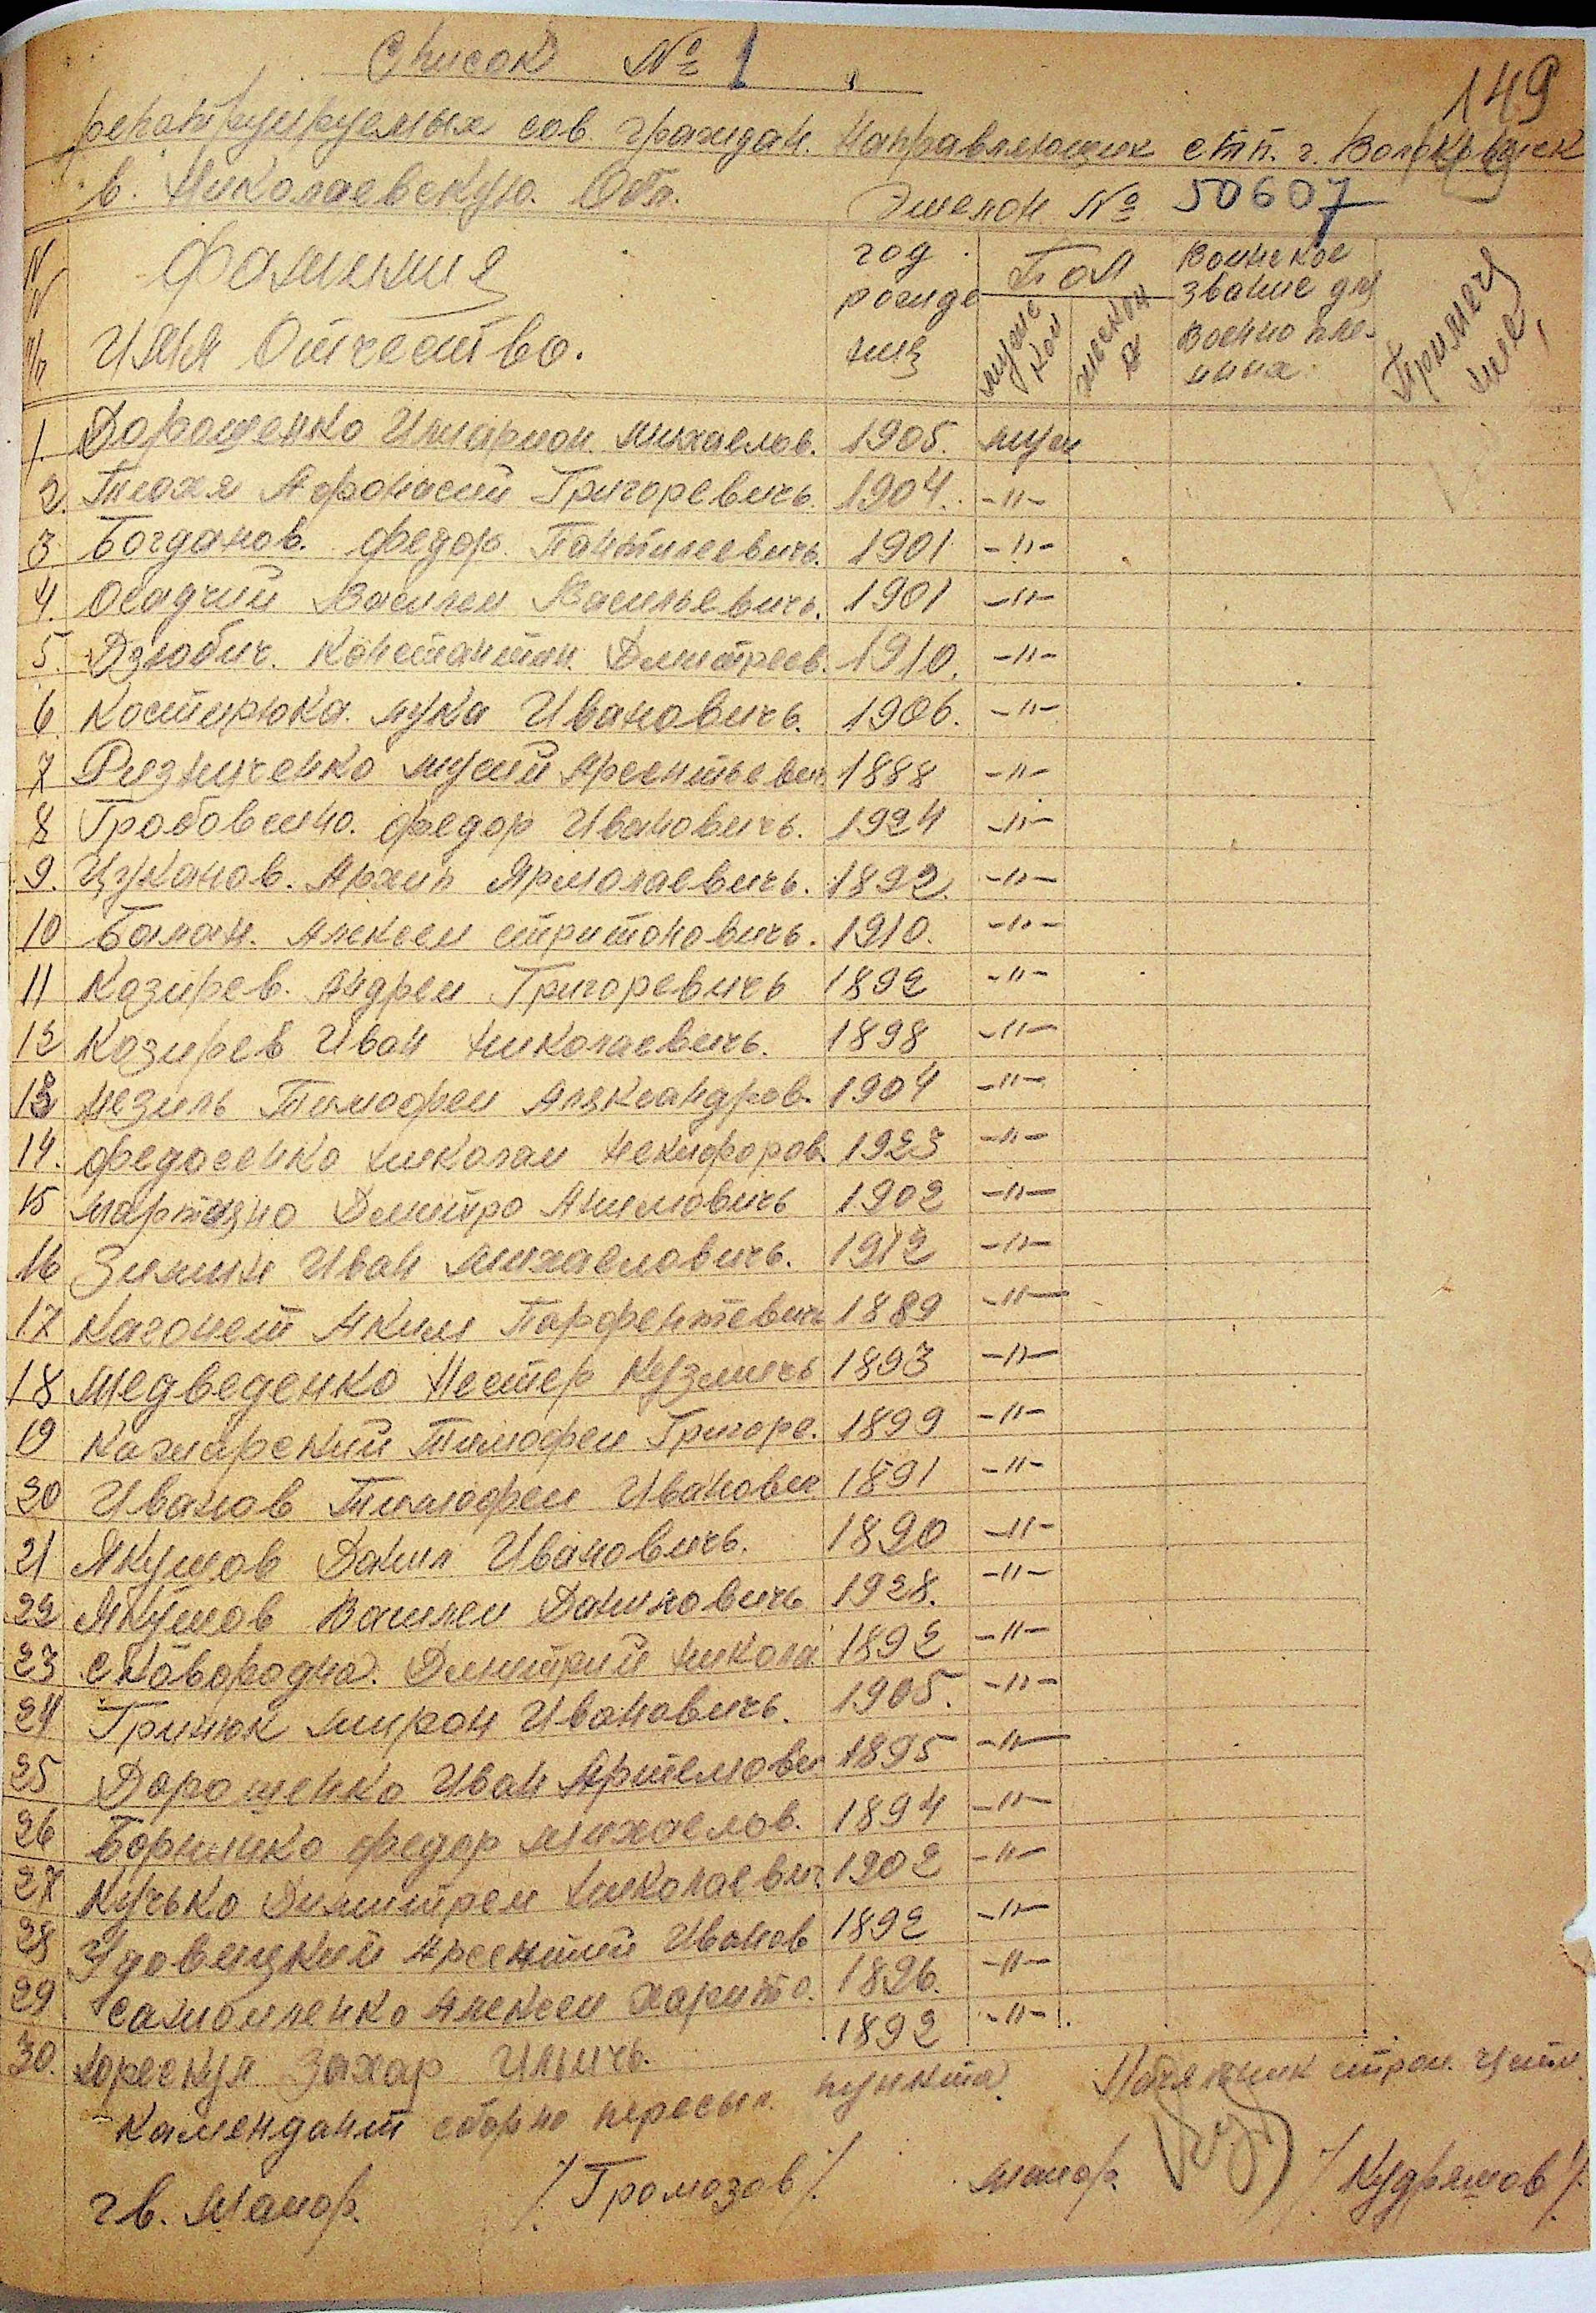 Список № 1
149
репатриируемых сов. граждан. Направляющих спп. г. Волковыск
в. Николаевскую. Обл.
Эшелон № 50607
N N п/п
Фамилия
Имя Отчество.
год рожде ния
Пол
мужс кой
женскои
Воинское звание для военно пле- нных.
Примеча ние
1. Дорощенко Иларион. Михаелов. 1905. муж
2. Тиохя Афонасий Григоревичь. 1904. -"-
3 Богданов. Федор. Пантилеевичь. 1901 -"-
4. Осадчий Василеи Васильевичь. 1901 -"-
5. Дзюбич. Константин. Дмитреев. 1910. -"-
6. Костирюка. Лука Ивановичь. 1906. -"-
7 Ризниченко Мусий Арсентьевич 1888 -"-
8 Гробовенно. Федор Ивановичь. 1924 -"-
9. Цуканов. Архип Ярмолаевичь. 1892. -"-
10 Балан. Алексеи стритоновичь. 1910. -"-
11 Козирев. Андреи Григоревичь 1892 -"-
12 Козирев Иван Николаевичь. 1898 -"-
13 Незиль Тимофеи Александров. 1904 -"-
14. Федосенко Николаи Некифоров. 1923 -"-
15 Мартино Дмитро Акимовичь 1902 -"-
16 Зимин Иван Михаеловичь. 1912 -"-
17 Кагонет Аким Парфентевичь 1889 -"-
18 Медведенко Нестер Кузмичь 1893 -"-
19 Кажарский Тимофеи Григоре. 1899 -"-
20 Иванов Тимофеи Иванович 1891 -"-
21 Якушов Данил Ивановичь. 1890 -"-
22 Якушов Василеи Даниловичь 1928. -"-
23 Сковородна. Дмитрий Никола 1892 -"-
24 Гринюк Мирон Ивановичь. 1905. -"-
25 Дорощенко Иван Артемович 1895 -"-
26 Борилко Федор Михаелов. 1894 -"-
27 Кучько Димитреи Николаевич 1902 -"-
28 Удовицкий Арсентий Иванов 1892 -"-
29 Самойленко Алексеи Харито. 1896. -"-
30. Корескул Захар Ильичь. 1892 -"-
Камендант сборно пересыл. пункта. Начяльник строи. части.
гв. Маиор. /Громозов/. маиор. /Кудряшов/.